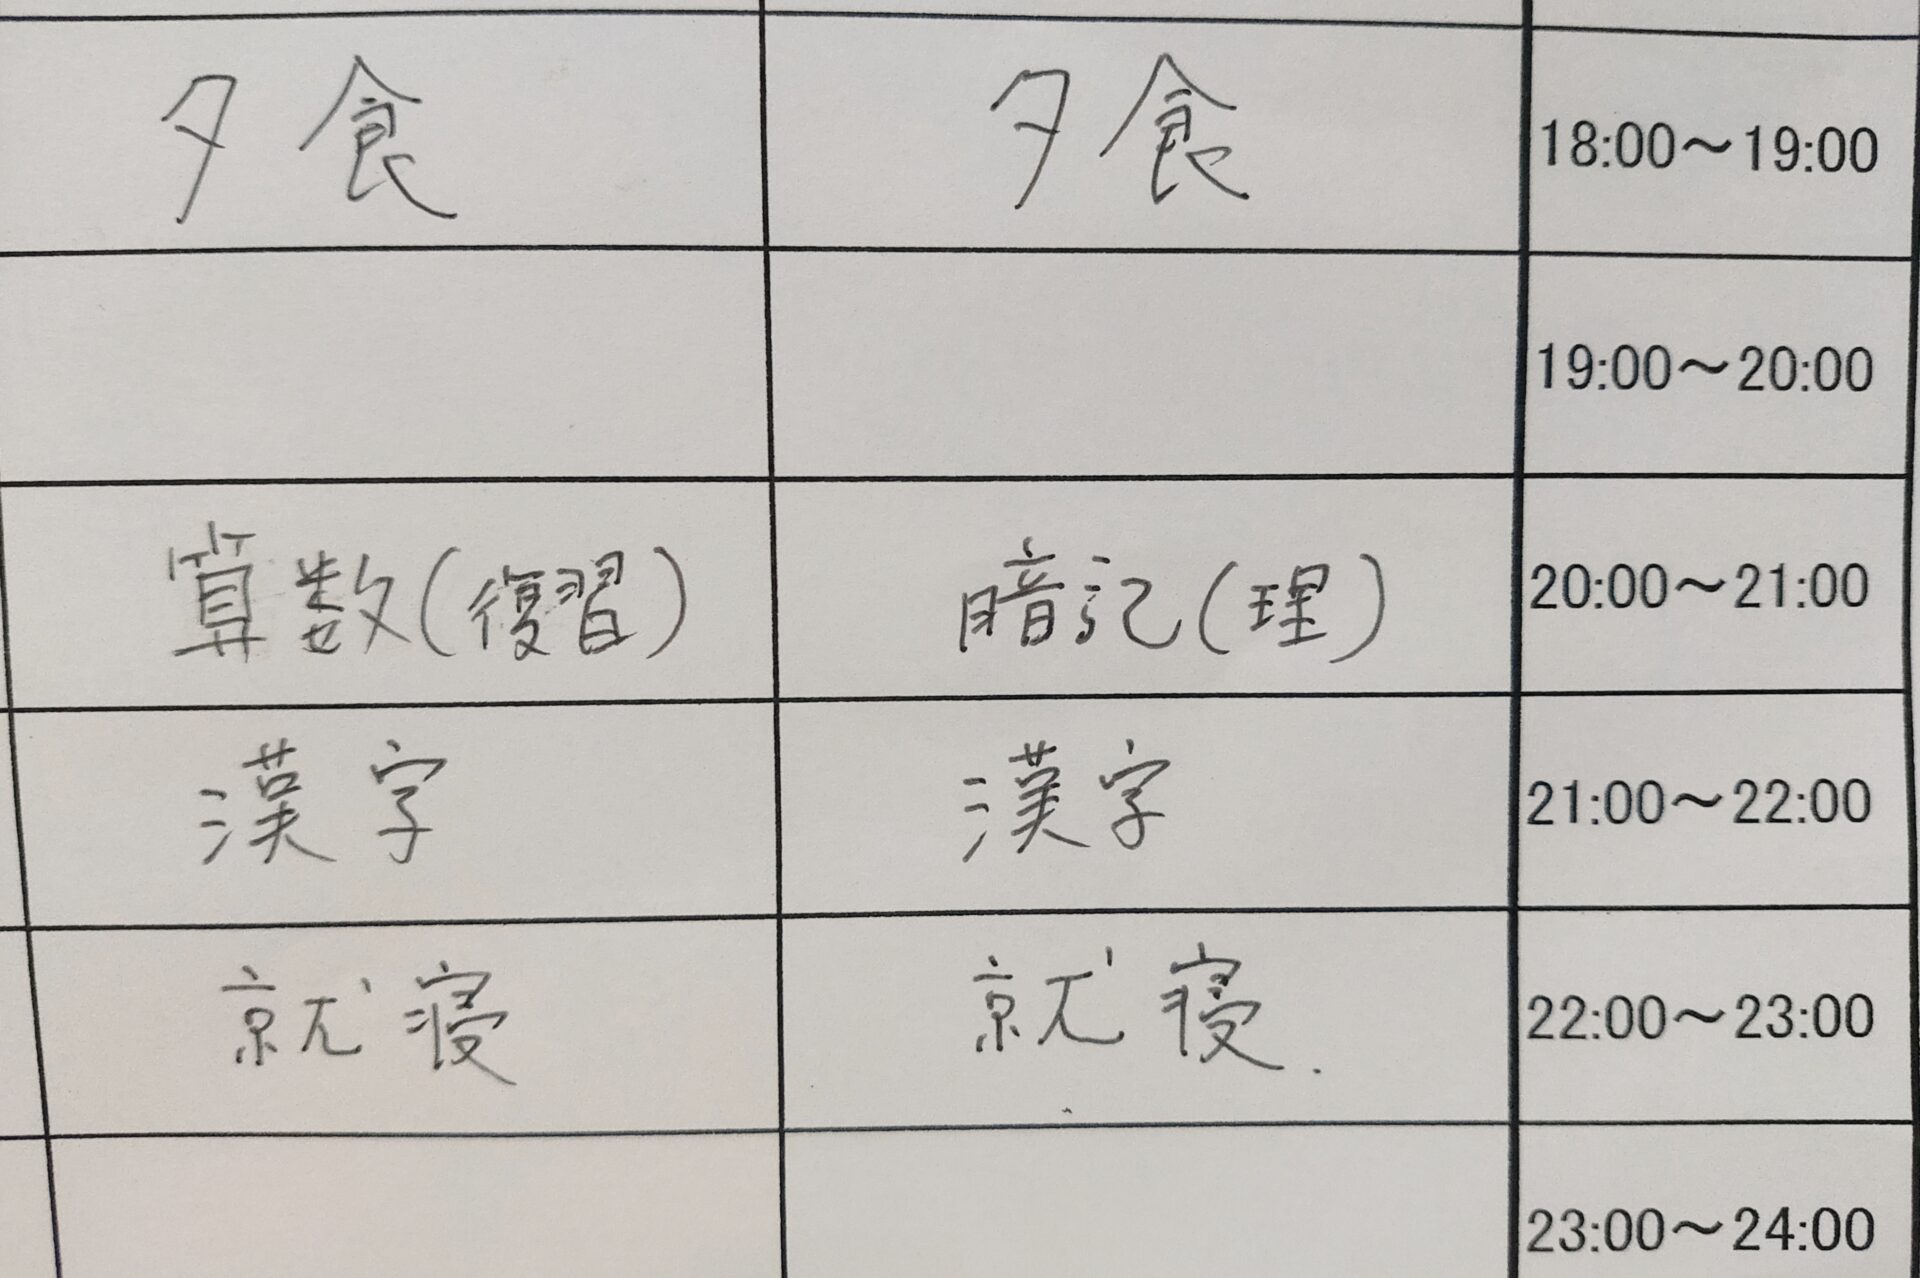 夕食 夕食 18:00～19:00
19:00～20:00
算数(復習) 暗記(理) 20:00～21:00
漢字 漢字 21:00～22:00
就寝 就寝. 22:00～23:00
23:00～24:00